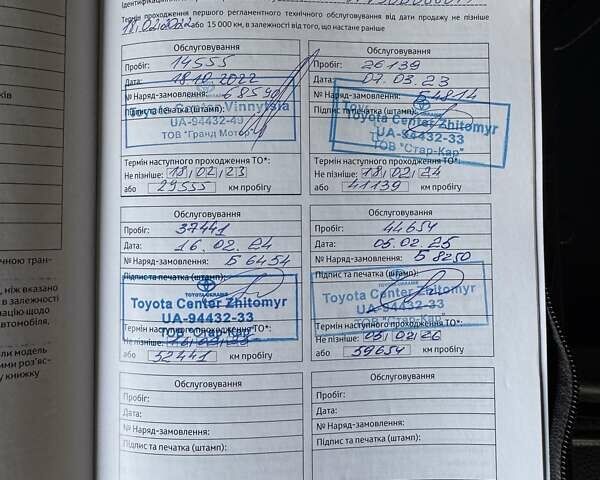 Термін проходження першого регламентного технічного обслуговування від дати продажу не пізніше
18.02.2022 або 15 000 км, в залежності від того, що настане раніше
Обслуговування
Пробіг: 14555
Дата: 18.10.2022
№ Наряд-замовлення: 68590
Підпис та печатка (штамп):
Toyota Center Vinnytsia
UA-94432-49
ТОВ "Гранд Мотор"
Термін наступного проходження ТО*:
Не пізніше: 18 02 23
або 29555 км пробігу
Обслуговування
Пробіг: 26139
Дата: 07.03.23
№ Наряд-замовлення: 54814
Підпис та печатка (штамп):
Toyota Center Zhitomyr
UA-94432-33
ТОВ "Стар-Кар"
Термін наступного проходження ТО*:
Не пізніше: 18 02 24
або 41139 км пробігу
Обслуговування
Пробіг: 37441
Дата: 16.02.24
№ Наряд-замовлення: 56454
Підпис та печатка (штамп):
TOYOTA UKRAINE
Toyota Center Zhitomyr
UA-94432-33
ТОВ "Стар-Кар"
Термін наступного проходження ТО*:
Не пізніше:
або 52441 км пробігу
Обслуговування
Пробіг: 44654
Дата: 05.02.25
№ Наряд-замовлення: 58250
Підпис та печатка (штамп):
TOYOTA UKRAINE
Toyota Center Zhitomyr
UA-94432-33
ТОВ "Стар-Кар"
Термін наступного проходження ТО*:
Не пізніше: 05 02 26
або 59654 км пробігу
Обслуговування
Пробіг:
Дата:
№ Наряд-замовлення:
Підпис та печатка (штамп):
Обслуговування
Пробіг:
Дата:
№ Наряд-замовлення:
Підпис та печатка (штамп):
ічною тран-
, ніж вказано
в залежності
ацію щодо
втомобіля.
ли модель
ими роз'яс-
у книжку